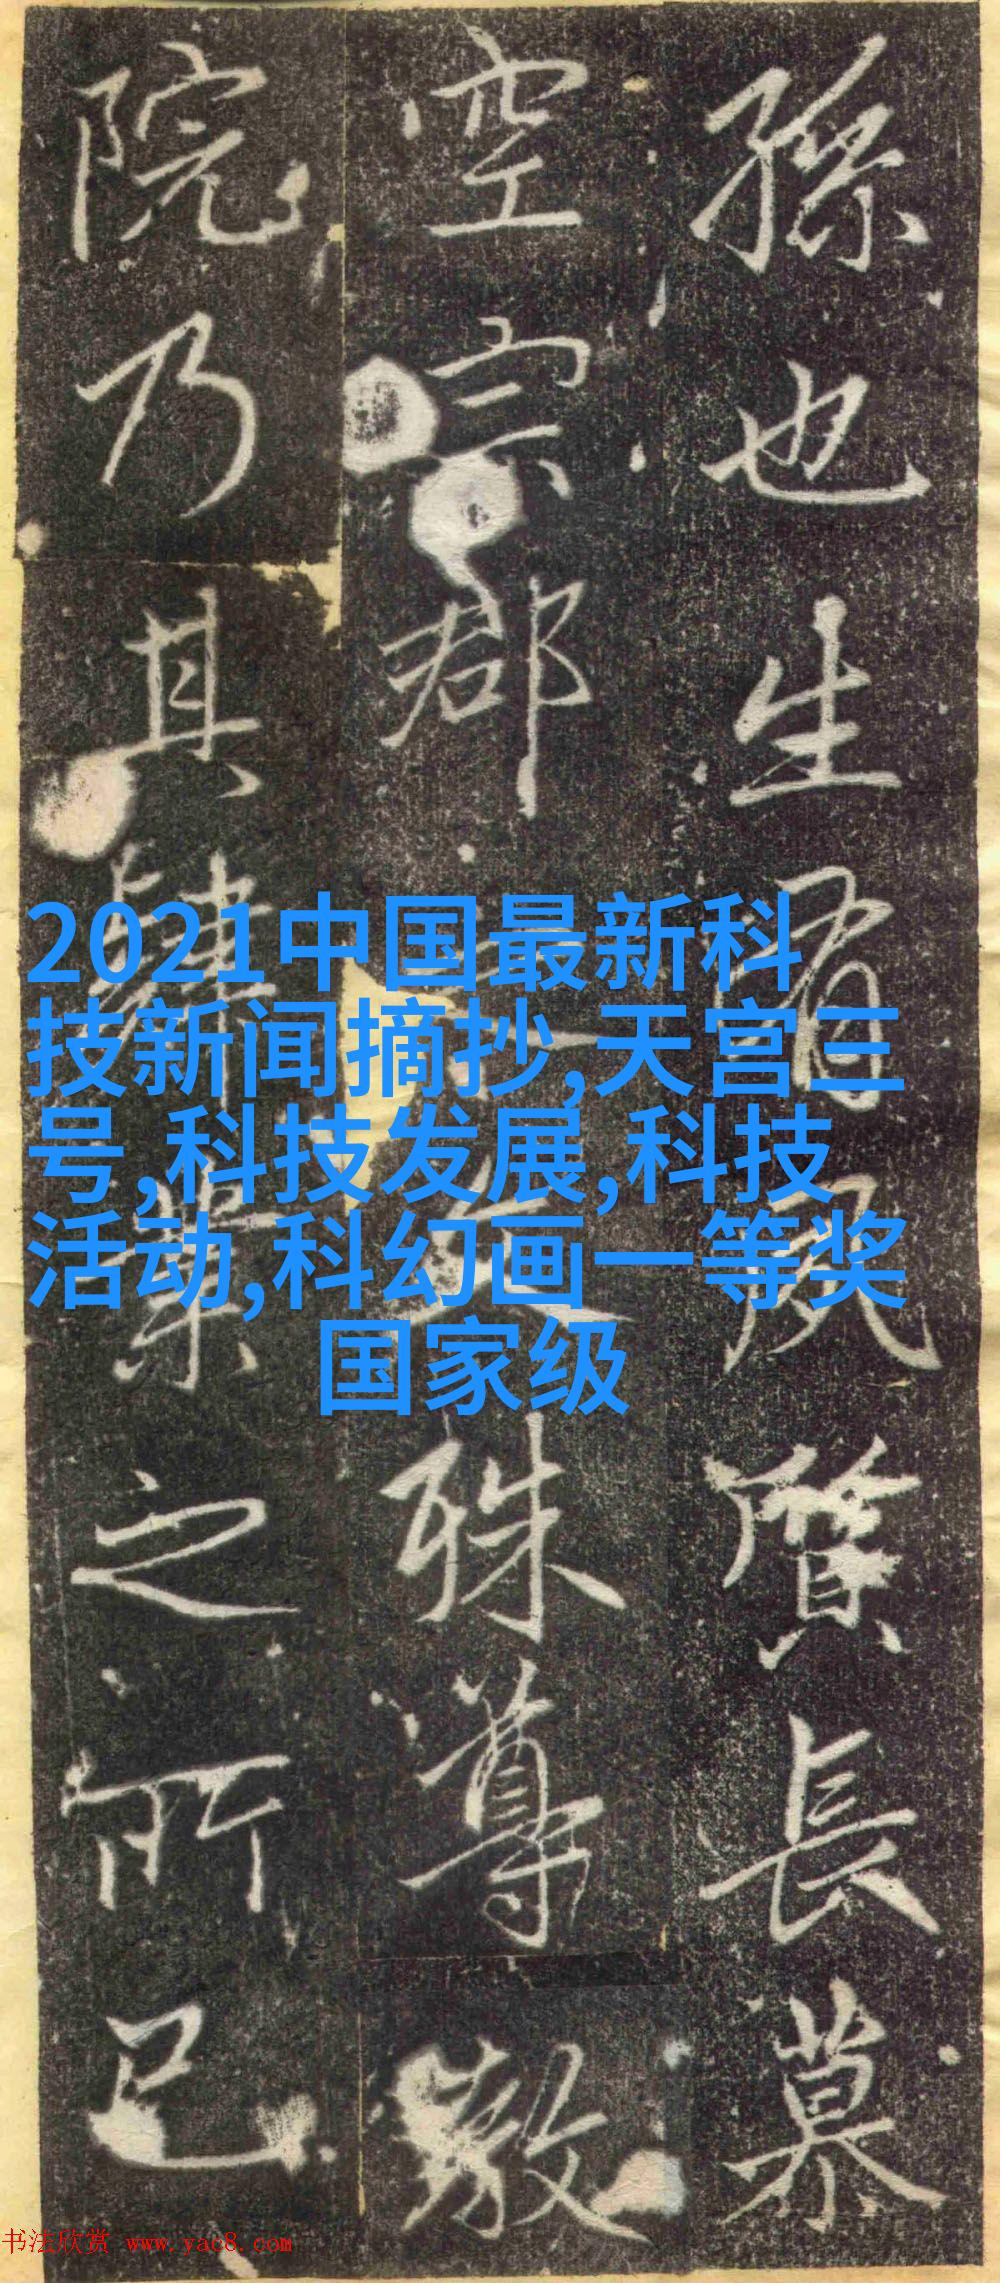 孫也生質長慕
空宗郡殊尊敬
院乃其肆業之所已
2021中国最新科
技新闻摘抄,天宫三
号,科技发展,科技
活动,科幻画一等奖
国家级
书法欣赏 www.yac8.com